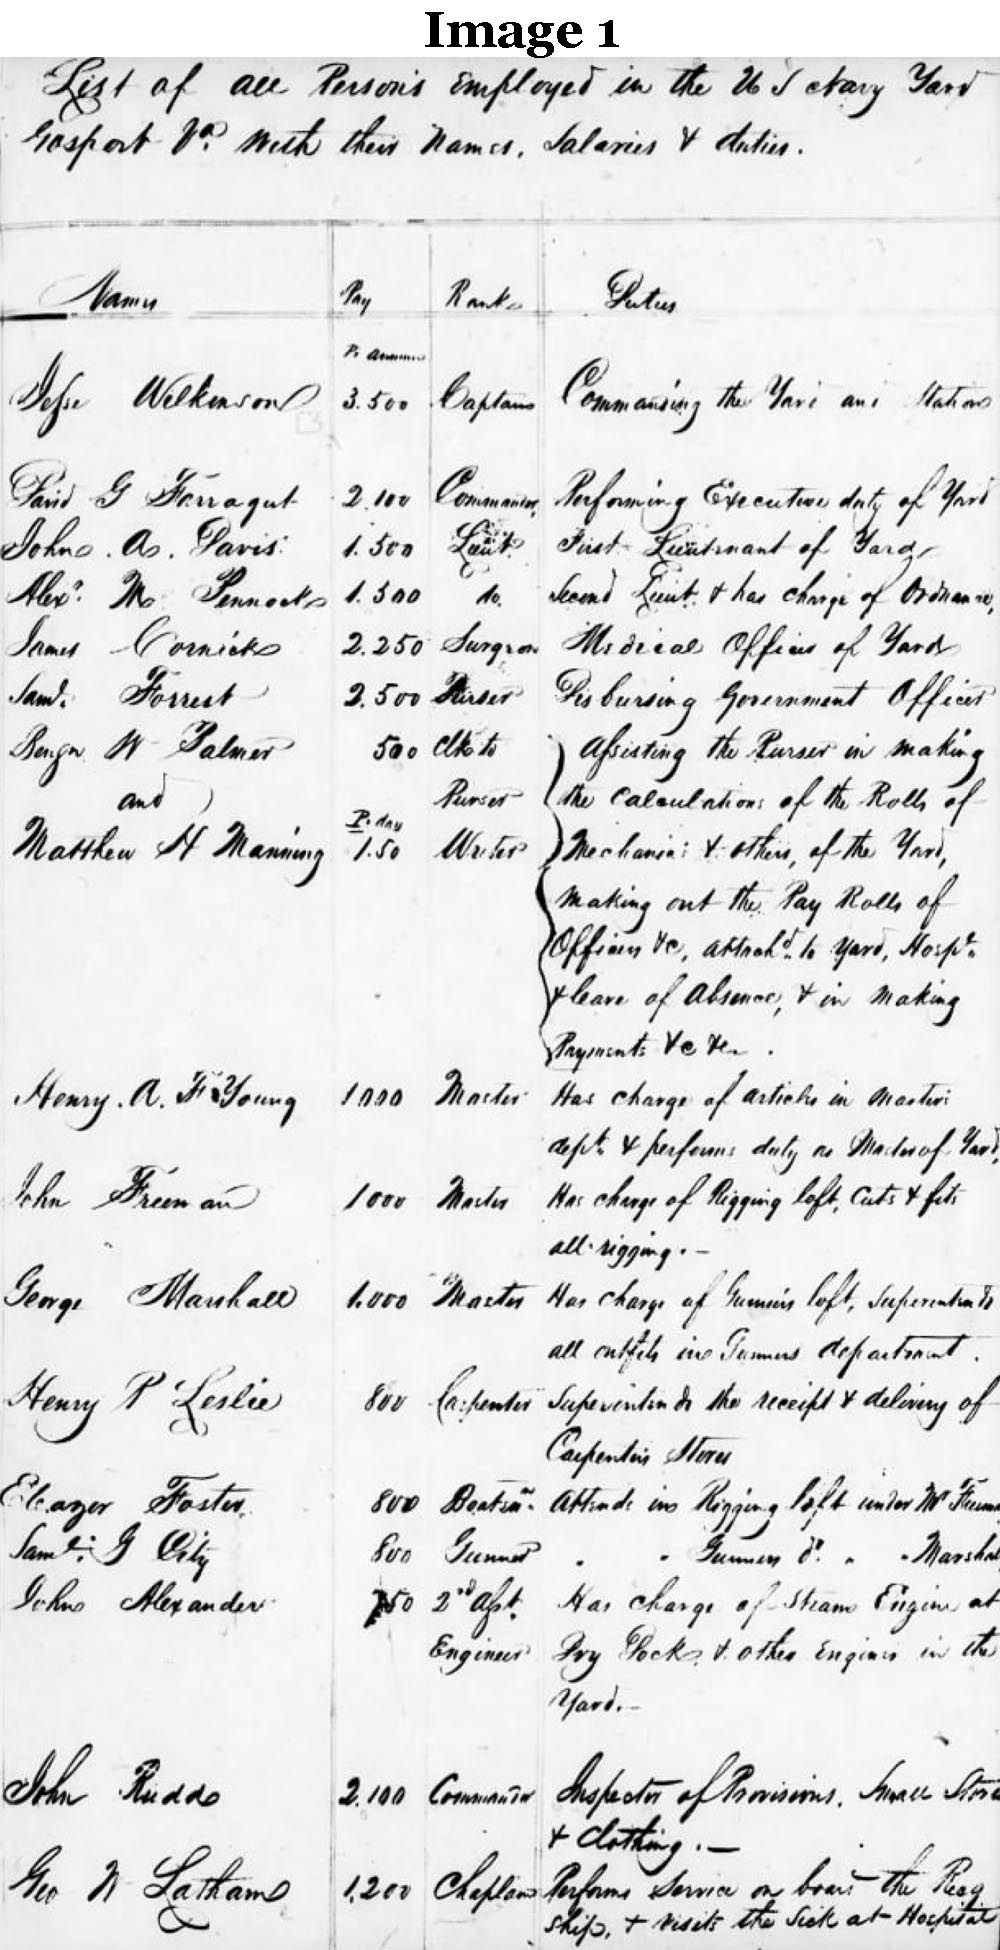 Image 1
List of all Persons employed in the U S Navy Yard
Gosport Va. with their Names, Salaries & duties.
Names Pay Rank Duties
Pr. annum
Jesse Wilkinson 3.500 Captain Commanding the Yard and Station
David G Farragut 2.100 Commander, Performing Executive duty of Yard
John A. Davis 1.500 Lieut. First Lieutenant of Yard
Alexr. M. Pennock 1.500 do. Second Lieut. & has charge of Ordnance,
James Cornick 2.250 Surgeon Medical Officer of Yard
Saml. Forrest 2.500 Purser Disbursing Government Officer
Benjn W Palmer 500 Clk to Assisting the Purser in making
and Purser the calculations of the Rolls of
P. day
Matthew H Manning 1.50 Writer Mechanics & others, of the Yard,
making out the Pay Rolls of
Officers &c, attachd. to Yard, Hospl.
& leave of Absence, & in making
Payments &c &c.
Henry. A. F. Young 1000 Master Has charge of articles in masters
dept. & performs duty as Master of Yard,
John Freeman 1000 Master Has charge of Rigging loft, Cuts & fits
all rigging. –
George Marshall 1.000 Master Has charge of Gunners loft, superintends
all outfits in Gunners department.
Henry P Leslie 800 Carpenter Superintends the receipt & delivery of
Carpenters Stores
Eleazer Foster 800 Boatsn. Attends in Rigging loft under Mr Freeman
Saml. G City 800 Gunner " " Gunners do. " " Marshall
John Alexander 750 2nd Asst. Has charge of Steam Engine at
Engineer Dry Dock & other Engines in the
Yard. –
John Rudd 2.100 Commander Inspector of Provisions, Small Stores
& Clothing. –
Geo W Latham 1.200 Chaplain Performs Service on board the Recg
ship, & visits the Sick at Hospital